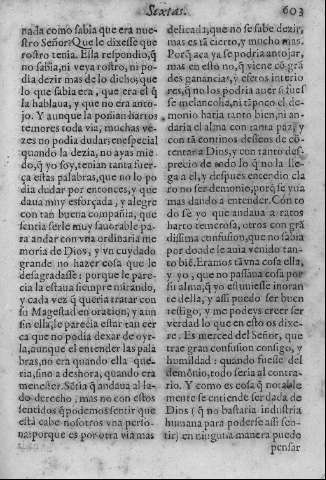 Sextas.
603
nada como sabia que era nue-
stro Señor? Que le dixesse que
rostro tenia. Ella respondio, q̃
no sabia, ni veya rostro, ni po
dia dezir mas de lo dicho, que
lo que sabia era, que era el q̃
la hablaua, y que no era anto-
jo. Y aunque la ponian hartos
temores toda via, muchas ve-
zes no podia dudar; en especial
quando la dezia, no ayas mie-
do, q̃ yo soy, tenian tanta fuer-
ça estas palabras, que no lo po
dia dudar por entonces, y que
daua muy esforçada, y alegre
con tan buena compañia, que
sentia serle muy fauorable pa-
ra andar con vna ordinaria me
moria de Dios, y vn cuydado
grande no hazer cosa que le
desagradasse: porque le pare-
cia la estaua siempre mirando,
y cada vez q̃ queria tratar con
su Magestad en oracion, y aun
sin ella, le parecia estar tan cer
ca que no podia dexar de oyr-
la, aunque el entender las pala
bras, no era quando ella que-
ria, sino a deshora, quando era
menester. Sẽtia q̃ andaua al la-
do derecho, mas no con estos
sentidos q̃ podemos sentir que
està cabe nosotros vna perso-
na: porque es por otra via mas
delicada, que no se sabe dezir,
mas es tã cierto, y mucho mas.
Porq̃ acà ya se podria antojar,
mas en esto no, q̃ viene cõ grã
des ganancias, y efetos interio
res, q̃ no los podria auer si fues
se melancolia, ni tãpoco el de-
monio haria tanto bien, ni an-
daria el alma con tanta paz, y
con tã continos desseos de cõ-
tentar a Dios, y con tanto des-
precio de todo lo q̃ no la lle-
ga a el, y despues entendio cla
ro no ser demonio, porq̃ se yua
mas dando a entender. Con to
do se yo que andaua a ratos
harto temerosa, otros con grã
dissima confusion, que no sabia
por donde le auia venido tan-
to biẽ. Eramos tã vna cosa ella,
y yo, que no passaua cosa por
su alma, q̃ yo estuuiesse inoran
te della, y assi puedo ser buen
testigo, y me podeys creer ser
verdad lo que en esto os dixe-
re. Es merced del Señor, que
trae gran confusion consigo, y
humildad: quando fuesse del
demonio, todo seria al contra-
rio. Y como es cosa q̃ notable
mente se entiende ser dada de
Dios (q̃ no bastaria industria
humana para poderse assi sen-
tir) en ninguna manera puede
pensar